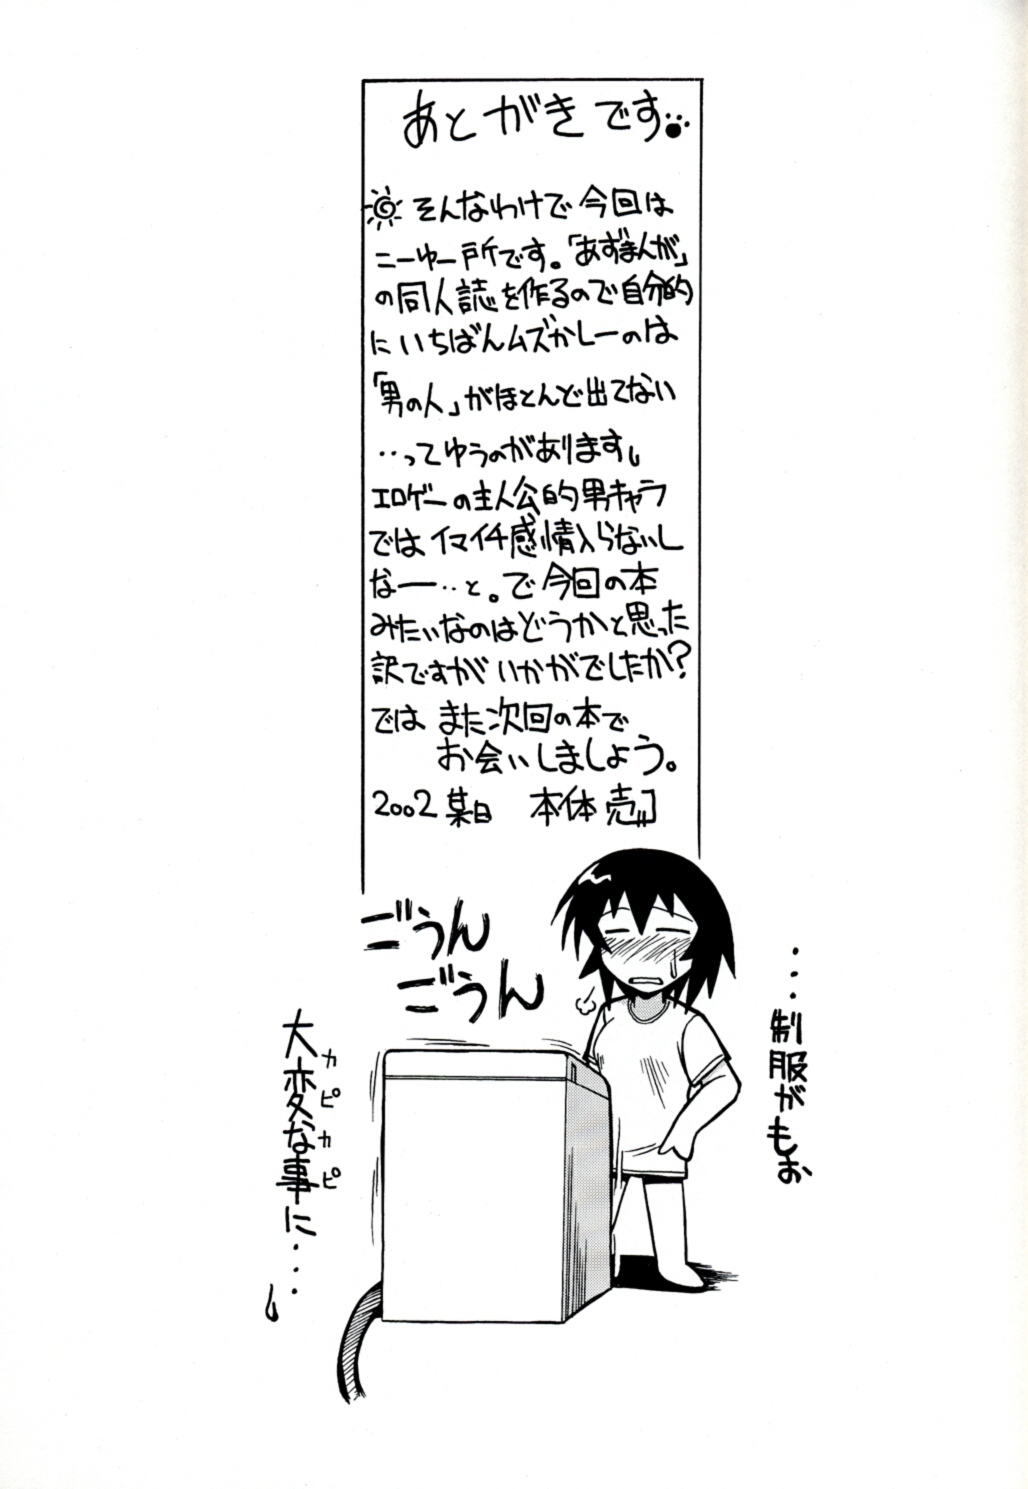 あとがきです
そんなわけで今回は
こーゆー所です。「あずまんが」
の同人誌を作るので自分的
にいちばんムズかしーのは
「男の人」がほとんど出てない
‥ってゆうのがあります。
エロゲーの主人公的男キャラ
ではイマイチ感情入らないし
なー‥と。で今回の本
みたいなのはどうかと思った
訳ですがいかがでしたか?
ではまた次回の本で
お会いしましょう。
2002某日 本体売
ごうん
ごうん
・・・制服がもお
大変な事に・・・
カピカピ